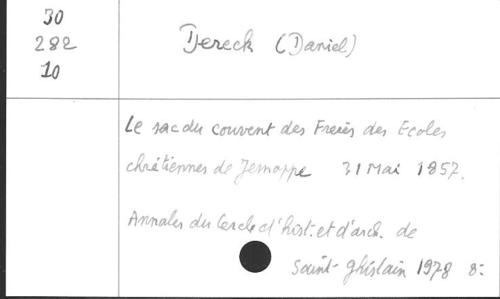 30
282
10
Dereck (Daniel)
Le sac du couvent des Freres des Ecoles
chrétiennes de Jemappe 31 Mai 1857.
Annales du Cercle d'hist. et d'arch. de
Saint-Ghislain 1978 8: